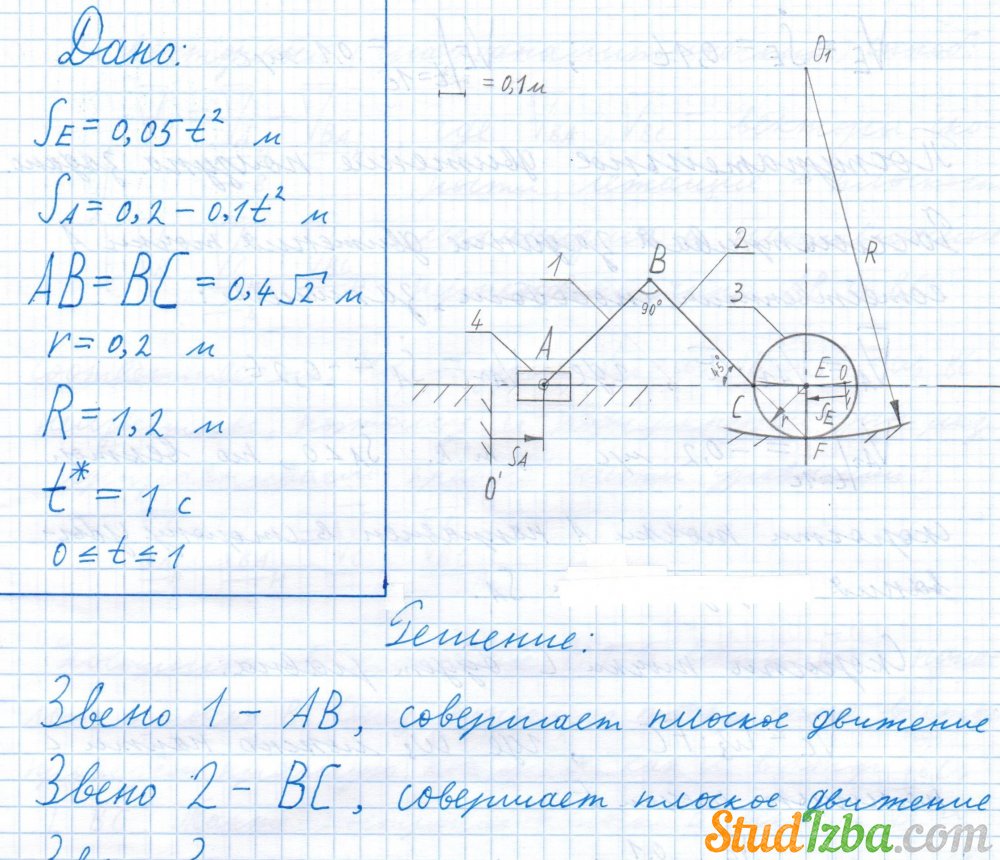 Дано:
SE = 0,05t² м
SA = 0,2 – 0,1t² м
AB = BC = 0,4√2 м
r = 0,2 м
R = 1,2 м
t* = 1 с
0 ≤ t ≤ 1
= 0,1м
O1
R
1
B
2
90°
3
4
A
45°
E
O
C
r
SE
SA
F
O'
Решение:
Звено 1 – AB, совершает плоское движение
Звено 2 – BC, совершает плоское движение
StudIzba.com